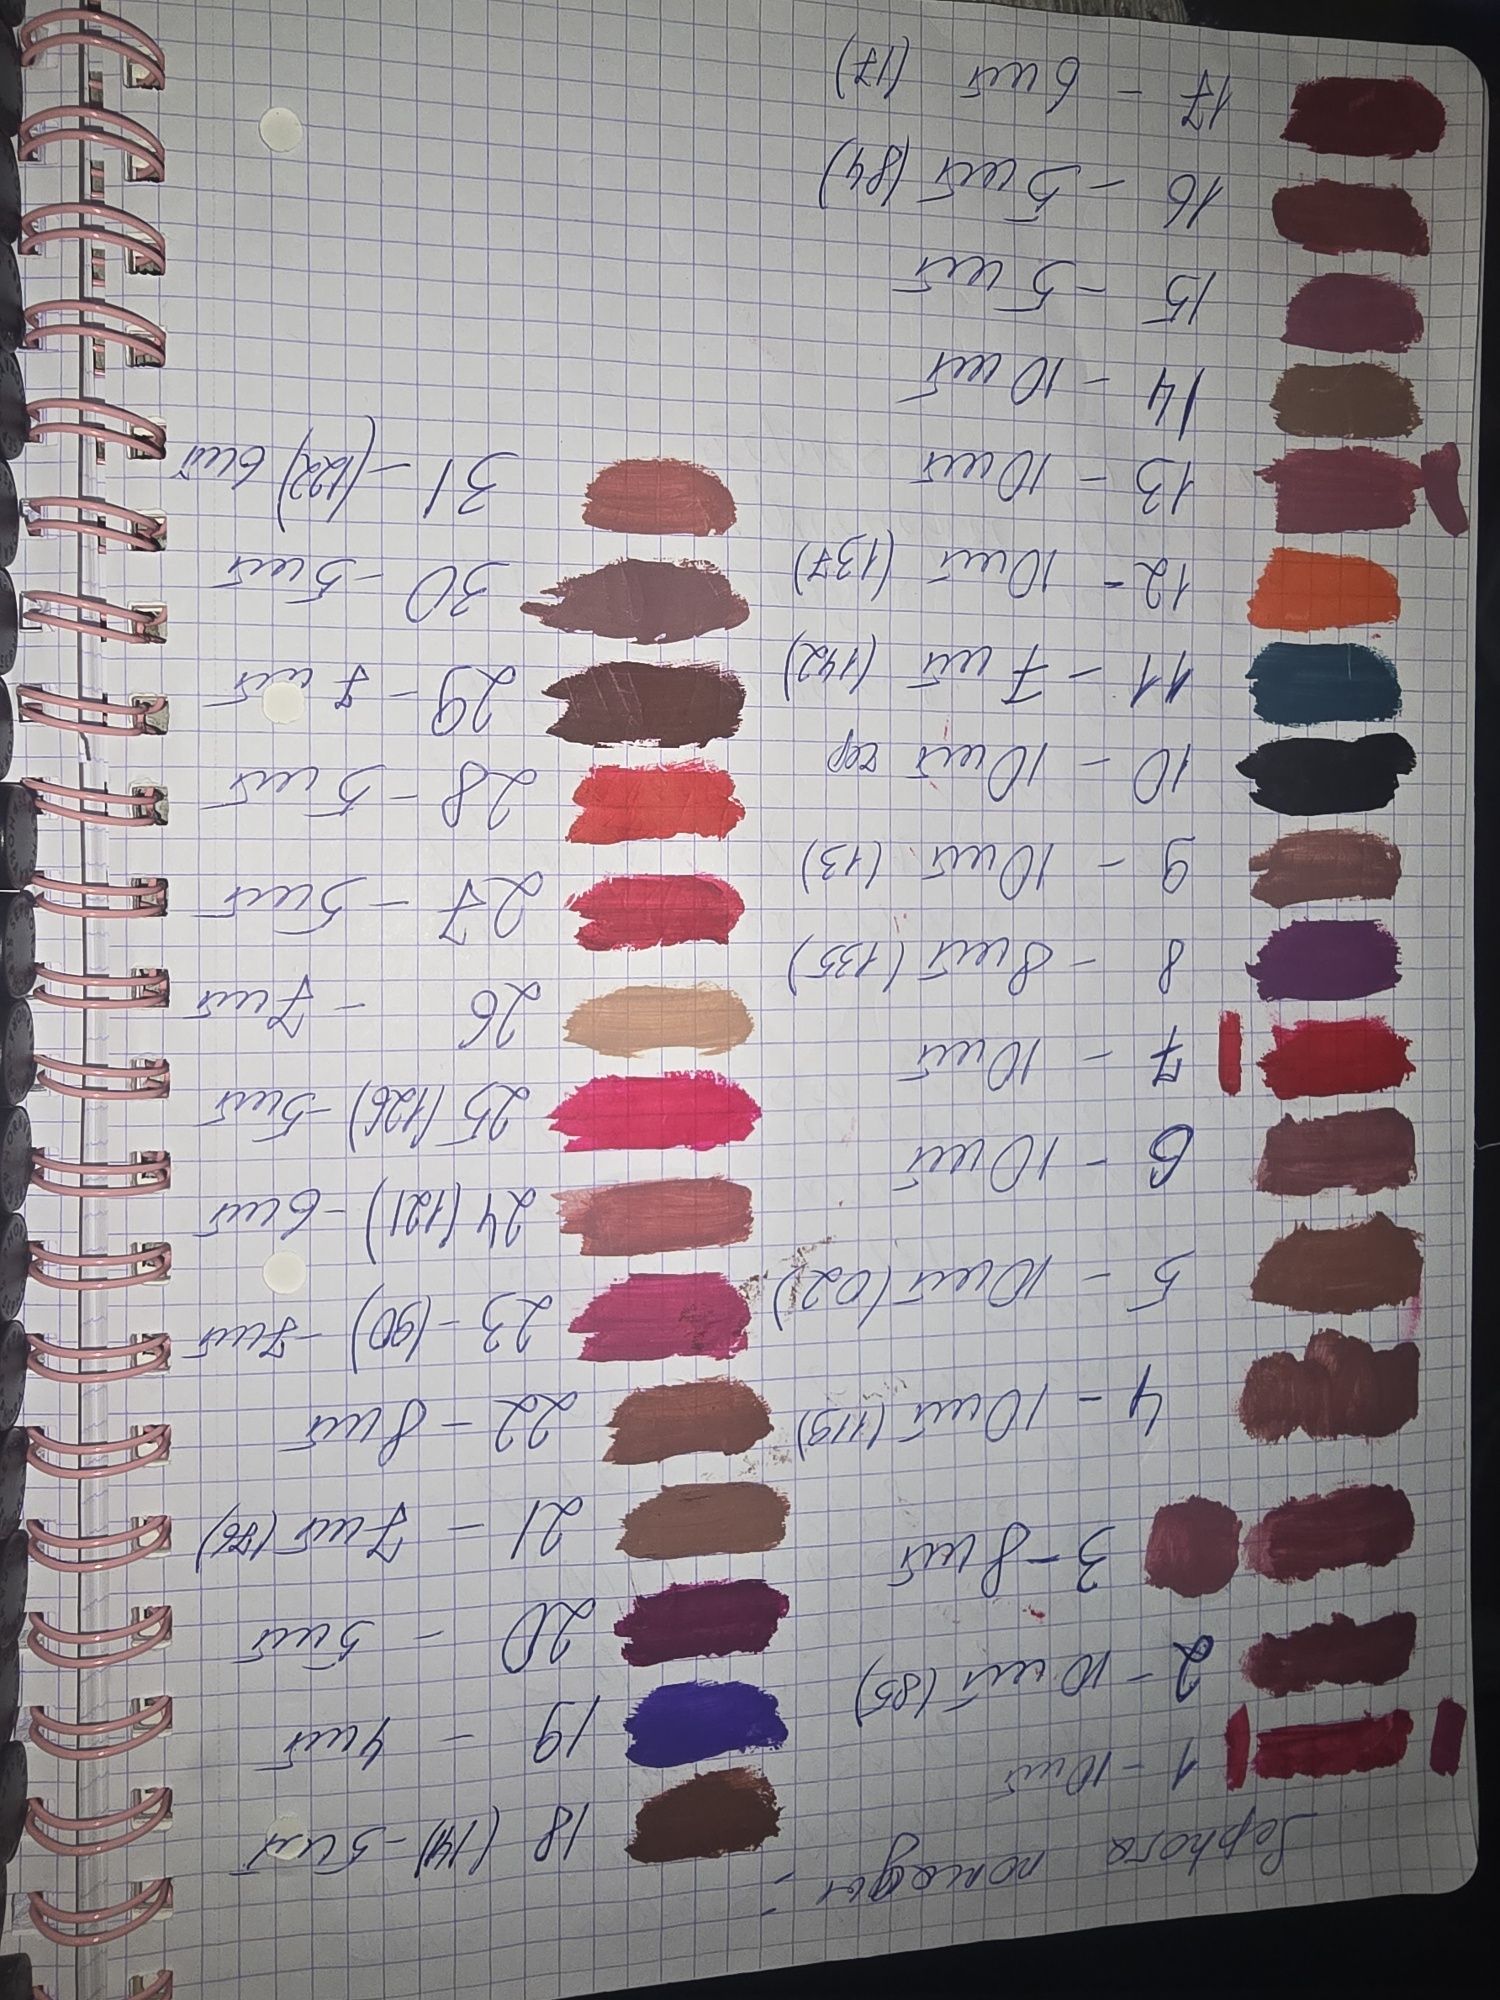 Sephora помады -
1 - 10 шт
2 - 10 шт (85)
3 - 8 шт
4 - 10 шт (119)
5 - 10 шт (02)
6 - 10 шт
7 - 10 шт
8 - 8 шт (135)
9 - 10 шт (13)
10 - 10 шт чер
11 - 7 шт (142)
12 - 10 шт (137)
13 - 10 шт
14 - 10 шт
15 - 5 шт
16 - 5 шт (84)
17 - 6 шт (17)
18 (14) - 5 шт
19 - 4 шт
20 - 5 шт
21 - 7 шт (76)
22 - 8 шт
23 - (90) - 7 шт
24 (121) - 6 шт
25 (126) - 5 шт
26 - 7 шт
27 - 5 шт
28 - 5 шт
29 - 7 шт
30 - 5 шт
31 - (122) 6 шт